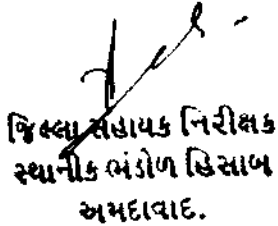 જિલ્લા સહાયક નિરીક્ષક
સ્થાનીક ભંડોળ હિસાબ
અમદાવાદ.